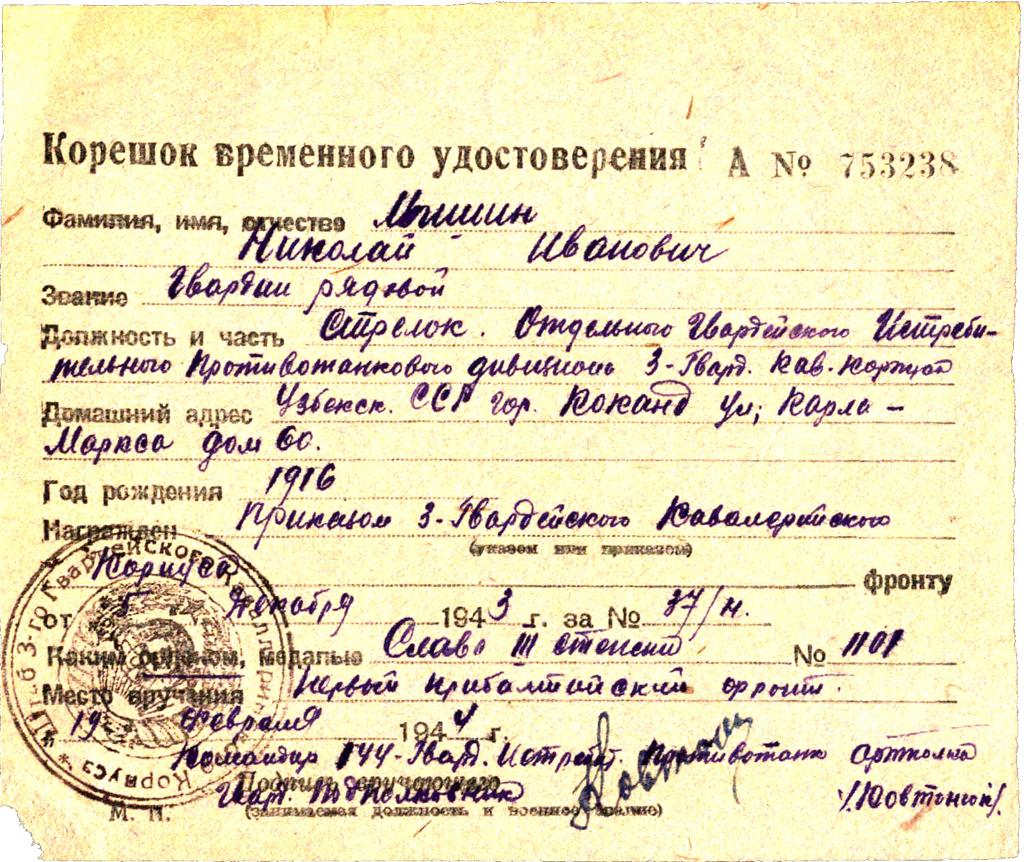 Корешок временного удостоверения А № 753238
Фамилия, имя, отчество Мышин
Николай Иванович
Звание Гвардии рядовой
Должность и часть Стрелок. Отдельного Гвардейского Истреби-
тельного Противотанкового дивизиона 3-Гвард. Кав. Корпуса
Домашний адрес Узбекск. ССР гор. Коканд ул; Карла-
Маркса дом 60.
Год рождения 1916
Награжден Приказом 3-Гвардейского Кавалерийского
(указом или приказом)
Корпуса фронту
от 5 Декабря 1943 г. за № 37/н.
Каким орденом, медалью Слава III степени № 1101
Место вручения Первый Прибалтийский фронт.
19 Февраля 1944 г.
Командир 144-Гвард. Истребит. Противотанк артполка
Подпись вручающего
Гвард. Подполковник
(занимаемая должность и военное звание)
М. П.
Штаб 3-го Гвардейского Кавалерийского Корпуса